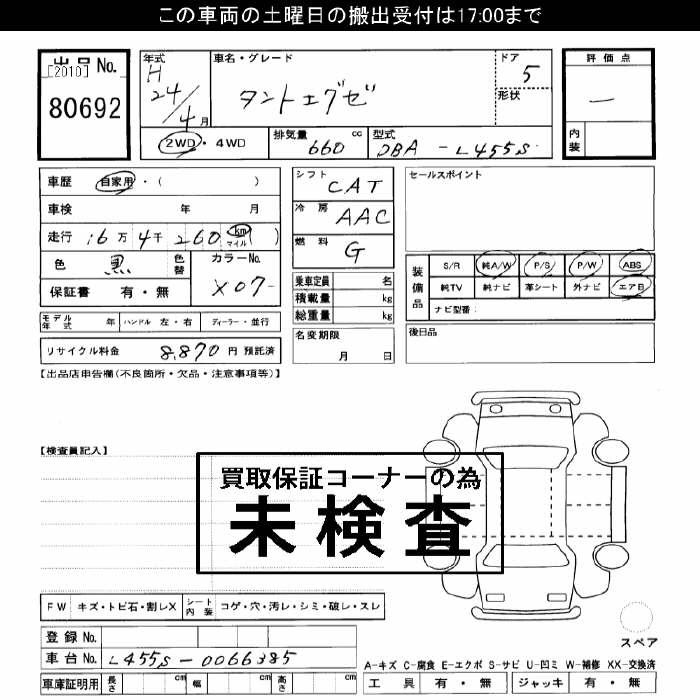 この車両の土曜日の搬出受付は17:00まで
出品 No.
[2010]
80692
年式
H
24/4月
車名・グレード
タントエグゼ
ドア
5
形状
評価点
—
内装
2WD・4WD
排気量 cc
660
型式
DBA-L455S
車歴 自家用・( )
車検 年 月
走行 16万4千260 km マイル ( )
色 黒 色替
カラーNo.
X07
保証書 有・無
シフト
CAT
冷房
AAC
燃料
G
乗車定員 名
積載量 kg
総重量 kg
セールスポイント
装備品
S/R 純A/W P/S P/W ABS
純TV 純ナビ 革シート 外ナビ エアB
ナビ型番:
モデル年式 年 ハンドル 左・右 ディーラー・並行
リサイクル料金 8,870 円 預託済
名変期限
月 日
後日品
【出品店申告欄(不良箇所・欠品・注意事項等)】
【検査員記入】
買取保証コーナーの為
未検査
FW キズ・トビ石・割レX シート内装 コゲ・穴・汚レ・シミ・破レ・スレ
スペア
登録 No.
車台 No. L455S-0066385
A-キズ C-腐食 E-エクボ S-サビ U-凹ミ W-補修 XX-交換済
車庫証明用 長さ cm 幅 cm 高さ cm
工具 有・無 ジャッキ 有・無